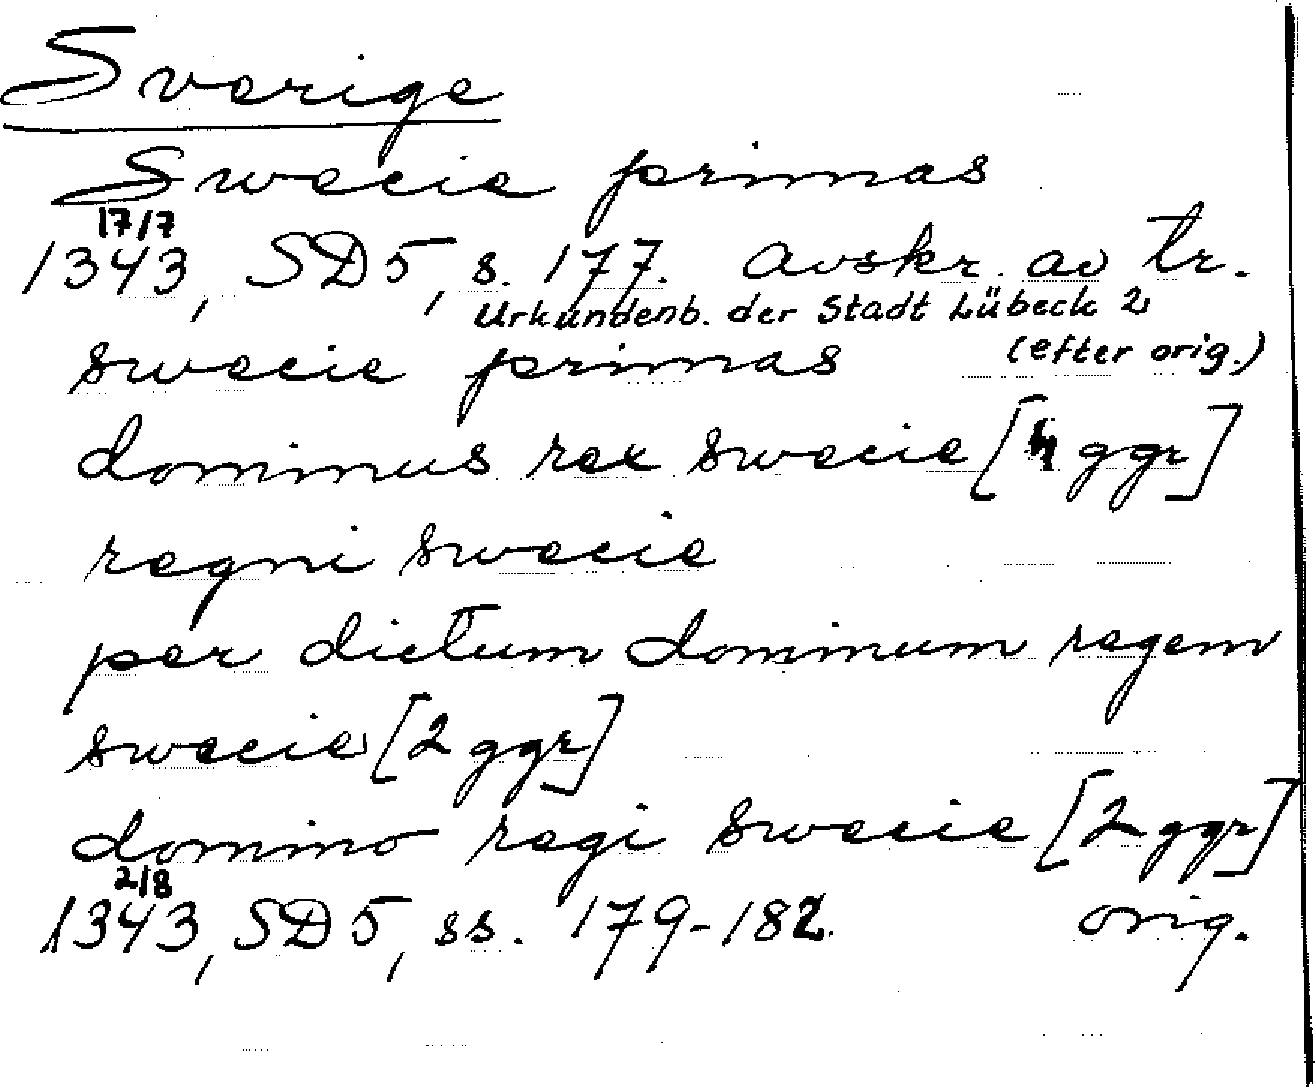 Sverige
Swecie primas
17/7
1343, SD 5, s. 177. avskr. av tr.
Urkundenb. der Stadt Lübeck 2
(efter orig.)
swecie primas
dominus rex swecie [4 ggr]
regni swecie
per dictum dominum regem
swecie [2 ggr]
domino regi swecie [2 ggr]
2/8
1343, SD 5, ss. 179-182 orig.